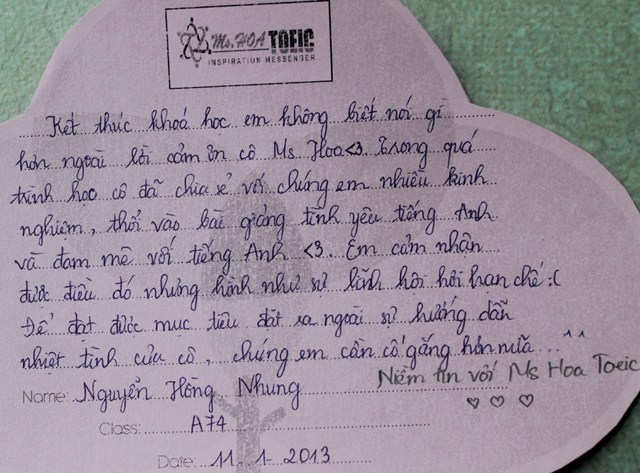 Ms. HOA TOEIC
INSPIRATION MESSENGER
Kết thúc khoá học em không biết nói gì
hơn ngoài lời cảm ơn cô Ms Hoa <3. Trong quá
trình học cô đã chia sẻ với chúng em nhiều kinh
nghiệm, thổi vào bài giảng tình yêu tiếng Anh
và đam mê với tiếng Anh <3. Em cảm nhận
được điều đó nhưng hình như sự lĩnh hội hơi hạn chế :(
Để đạt được mục tiêu đặt ra ngoài sự hướng dẫn
nhiệt tình của cô, chúng em cần cố gắng hơn nữa...^^
Niềm tin với Ms Hoa Toeic
♡ ♡ ♡
Name: Nguyễn Hồng Nhung
Class: A74
Date: 11-1-2013